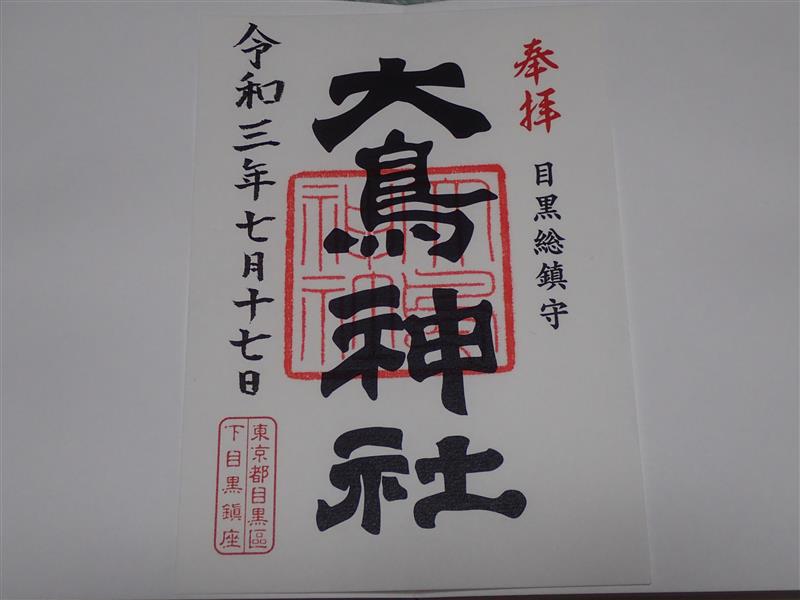 奉拝
目黒総鎮守
大鳥神社
令和三年七月十七日
東京都目黒區
下目黒鎭座